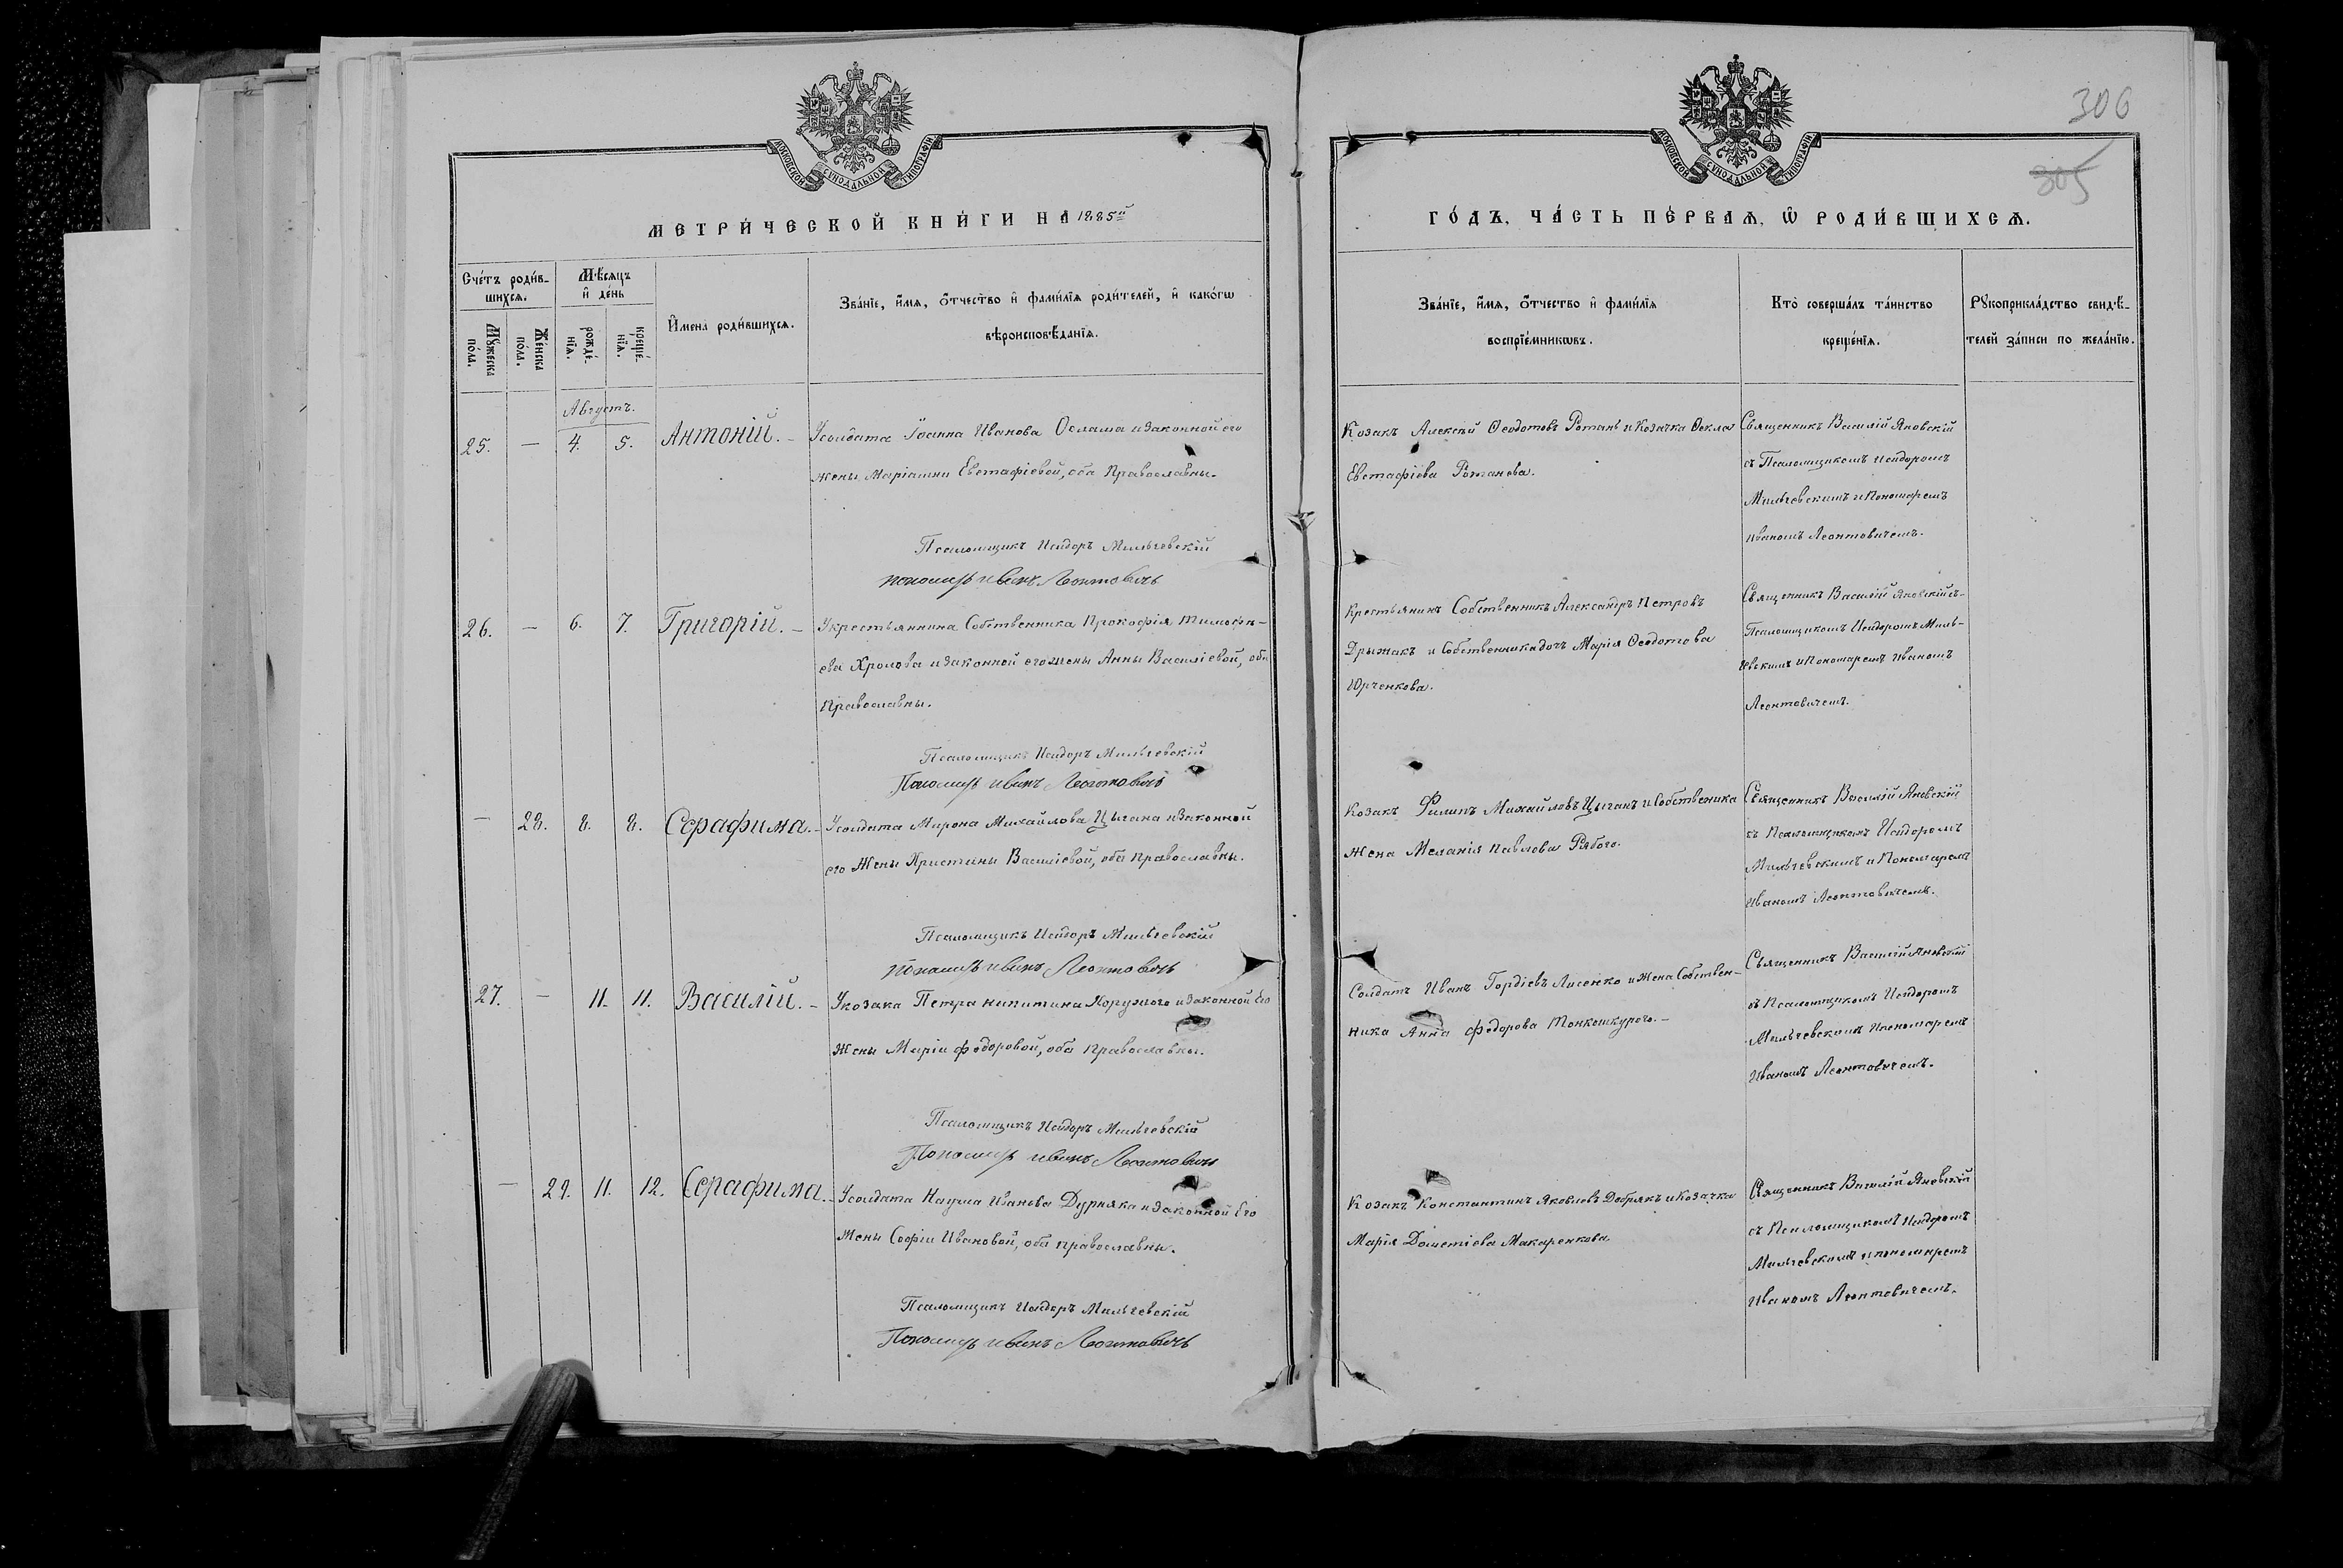 МОСКОВСКОЙ СѴНОДАЛЬНОЙ ТИПОГРАФІИ
МЕТРИ́ЧЕСКОЙ КНИ́ГИ НА 1885й
Сче́тъ роди́в-
шихсѧ.
Мѣ́сяцъ
и҆ де́нь
Мꙋ́жеска
по́ла.
Же́нска
по́ла.
рожде́-
нїѧ.
креще́-
нїѧ.
И҆мена̀ роди́вшихсѧ.
Зва́нїе, и҆́мѧ, ѻ҆́тчество и҆ фами́лїѧ роди́телей, и҆ како́гѡ
вѣроисповѣ́данїѧ.
Августъ.
25. — 4. 5. Антоній. — У солдата Іоанна Иванова Ослама и законной его
жены Маріанны Евстафіевой, оба Православны.
Псаломщикъ Исидоръ Мильчевскій
Пономарь Иванъ Леонтовичъ
26. — 6. 7. Григорій. — У крестьянина Собственника Прокофія Тимофѣ-
ева Хролова и законной его жены Анны Василіевой, оба
Православны.
Псаломщикъ Исидоръ Мильчевскій
Пономарь Иванъ Леонтовичъ
— 28. 8. 8. Серафима. — У солдата Мирона Михайлова Цыгана и законной
его Жены Христины Василіевой, оба православны.
Псаломщикъ Исидоръ Мильчевскій
Пономарь Иванъ Леонтовичъ
27. — 11. 11. Василій. — У козака Петра Никитина Хоружого и законной Его
Жены Маріи Федоровой, оба Православны.
Псаломщикъ Исидоръ Мильчевскій
Пономарь Иванъ Леонтовичъ
— 29. 11. 12. Серафима. — У солдата Наума Иванова Дурняка и законной Его
Жены Софіи Ивановой, оба православны.
Псаломщикъ Исидоръ Мильчевскій
Пономарь Иванъ Леонтовичъ
306
305
МОСКОВСКОЙ СѴНОДАЛЬНОЙ ТИПОГРАФІИ
ГО́ДЪ, ЧА́СТЬ ПЕ́РВАѦ, Ѡ҆ РОДИ́ВШИХСѦ.
Зва́нїе, и҆́мѧ, ѻ҆́тчество и҆ фами́лїѧ
воспрїе́мникѡвъ.
Кто̀ соверша́лъ та́инство
креще́нїѧ.
Рꙋкоприкла́дство свидѣ́-
телей за́писи по жела́нїю.
Козакъ Алексѣй Ѳеодотовъ Ротань и Козачка Ѳекла
Евстафіева Ротанова.
Священникъ Василій Яновскій
съ Псаломщикомъ Исидоромъ
Мильчевскимъ и Пономаремъ
Иваномъ Леонтовичемъ.
Крестьянинъ Собственникъ Александръ Петровъ
Дрыжакъ и Собственника дочь Марія Ѳеодотова
Юрченкова.
Священникъ Василій Яновскій съ-
Псаломщикомъ Исидоромъ Миль-
чевскимъ и Пономаремъ Иваномъ
Леонтовичемъ.
Козакъ Филипъ Михайловъ Цыганъ и Собственика
Жена Меланія Павлова Рябого.
Священникъ Василій Яновскій
съ Псаломщикомъ Исидоромъ
Мильчевскимъ и Пономаремъ
Иваномъ Леонтовичемъ.
Солдатъ Иванъ Гордіевъ Лисенко и Жена Собствен-
ника Анна Федорова Тонкошкурого. —
Священникъ Василій Яновскій
съ Псаломщикомъ Исидоромъ
Мильчевскимъ и пономаремъ
Иваномъ Леонтовичемъ.
Козакъ Константинъ Яковлевъ Добрякъ и Козачка
Марія Дометіева Макаренкова.
Священникъ Василій Яновскій
съ Псаломщикомъ Исидоромъ
Мильчевскимъ и пономаремъ
Иваномъ Леонтовичемъ.